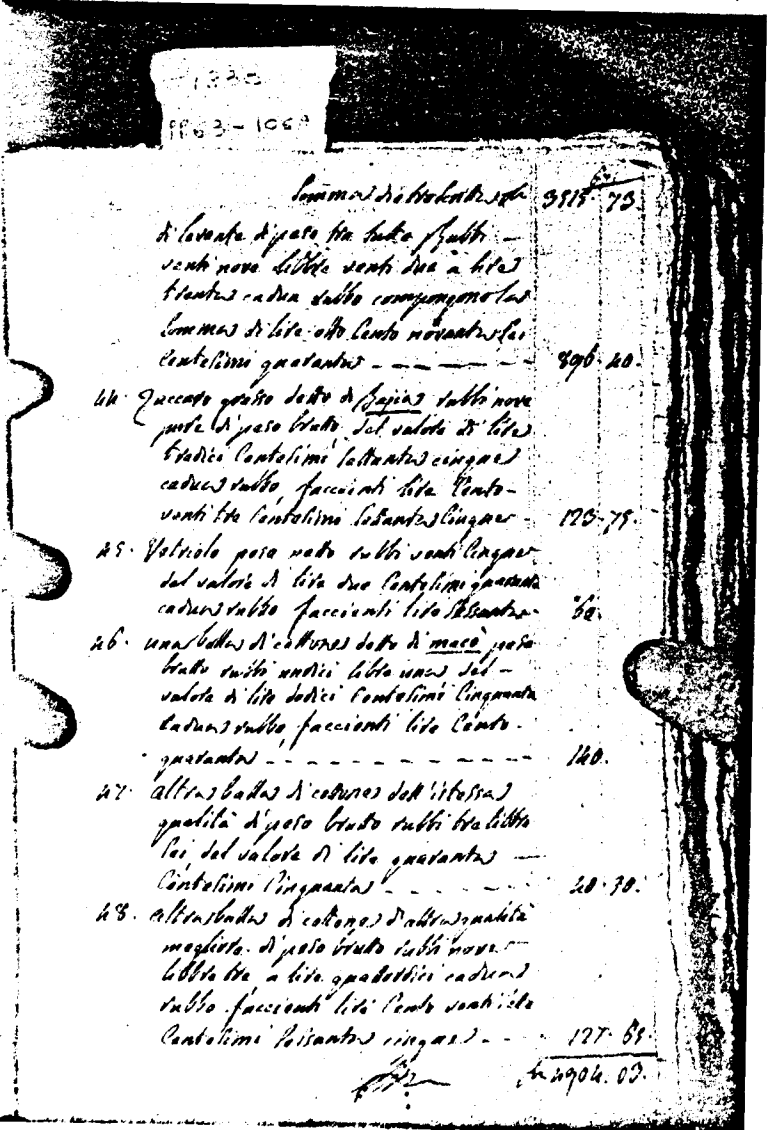 1330
PP63-106
Somma di 3515. 73.
di Levante di peso tra tutto Rubbi
venti nove libbre venti due a lire
trenta cadun rubbo compongono la
somma di lire otto Cento novanta sei
Centesimi quaranta - - - - - 896. 40.
44. Zuccaro grosso detto di rubbi nove
pure di peso brutto del valore di lire
tredici Centesimi settanta cinque
cadun rubbo, faccienti lire Cento
venti tre Centesimi settanta Cinque - 123. 75.
45. Vetriolo peso netto rubbi venti Cinque
del valore di lire due Centesimi quaranta
cadun rubbo faccienti lire sessanta - 60.
46. una balla di cottone detto di macò peso
brutto rubbi undici libbra una del -
valore di lire dodici Centesimi Cinquanta
Cadun rubbo, faccienti lire Cento
quaranta - - - - - - - - 140.
47. altra balla di cottone dell'istessa
qualità di peso brutto rubbi tre libbre
sei, del valore di lire quaranta -
Centesimi Cinquanta - - - - - 40. 50.
48. altra balla di cottone d'altra qualità
megliore di peso brutto rubbi nove
libbre tre a lire quattordici cadun
rubbo faccienti lire Cento venti sette
Centesimi sessanta cinque - - 127. 65.
4904. 03.